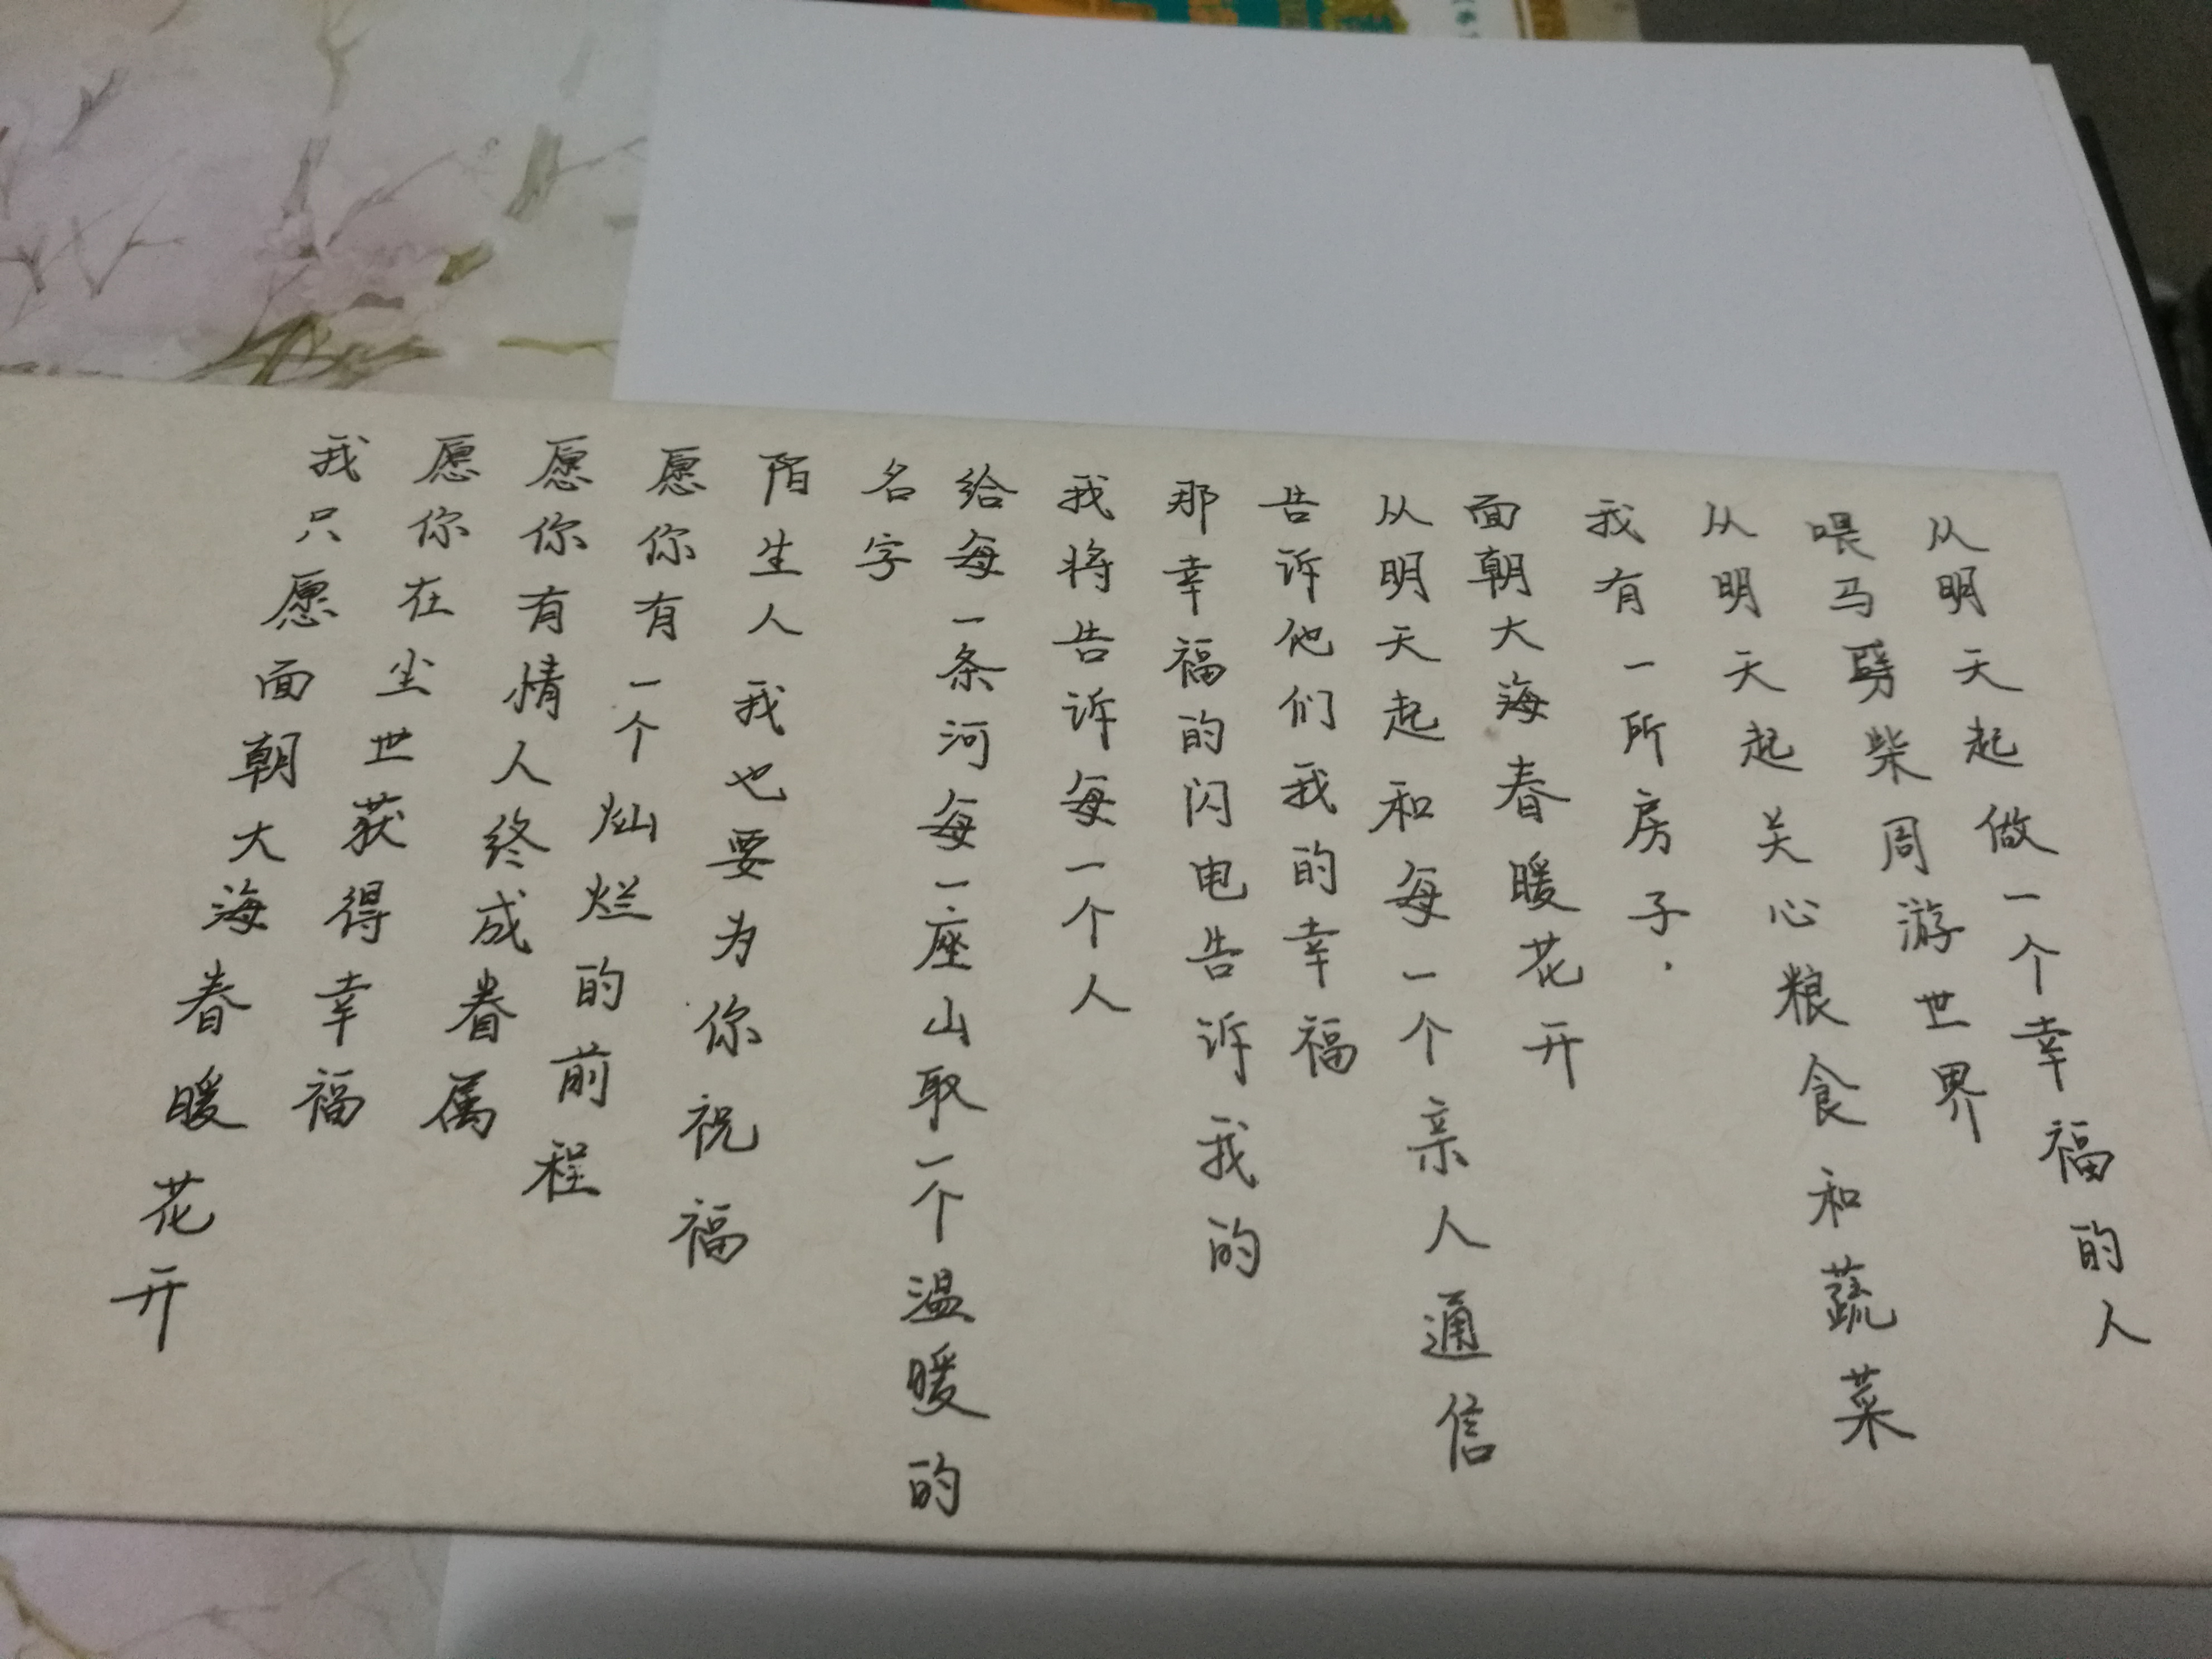 从明天起做一个幸福的人
喂马劈柴周游世界
从明天起关心粮食和蔬菜
我有一所房子.
面朝大海春暖花开
从明天起和每一个亲人通信
告诉他们我的幸福
那幸福的闪电告诉我的
我将告诉每一个人
给每一条河每一座山取一个温暖的
名字
陌生人我也要为你祝福
愿你有一个灿烂的前程
愿你有情人终成眷属
愿你在尘世获得幸福
我只愿面朝大海春暖花开